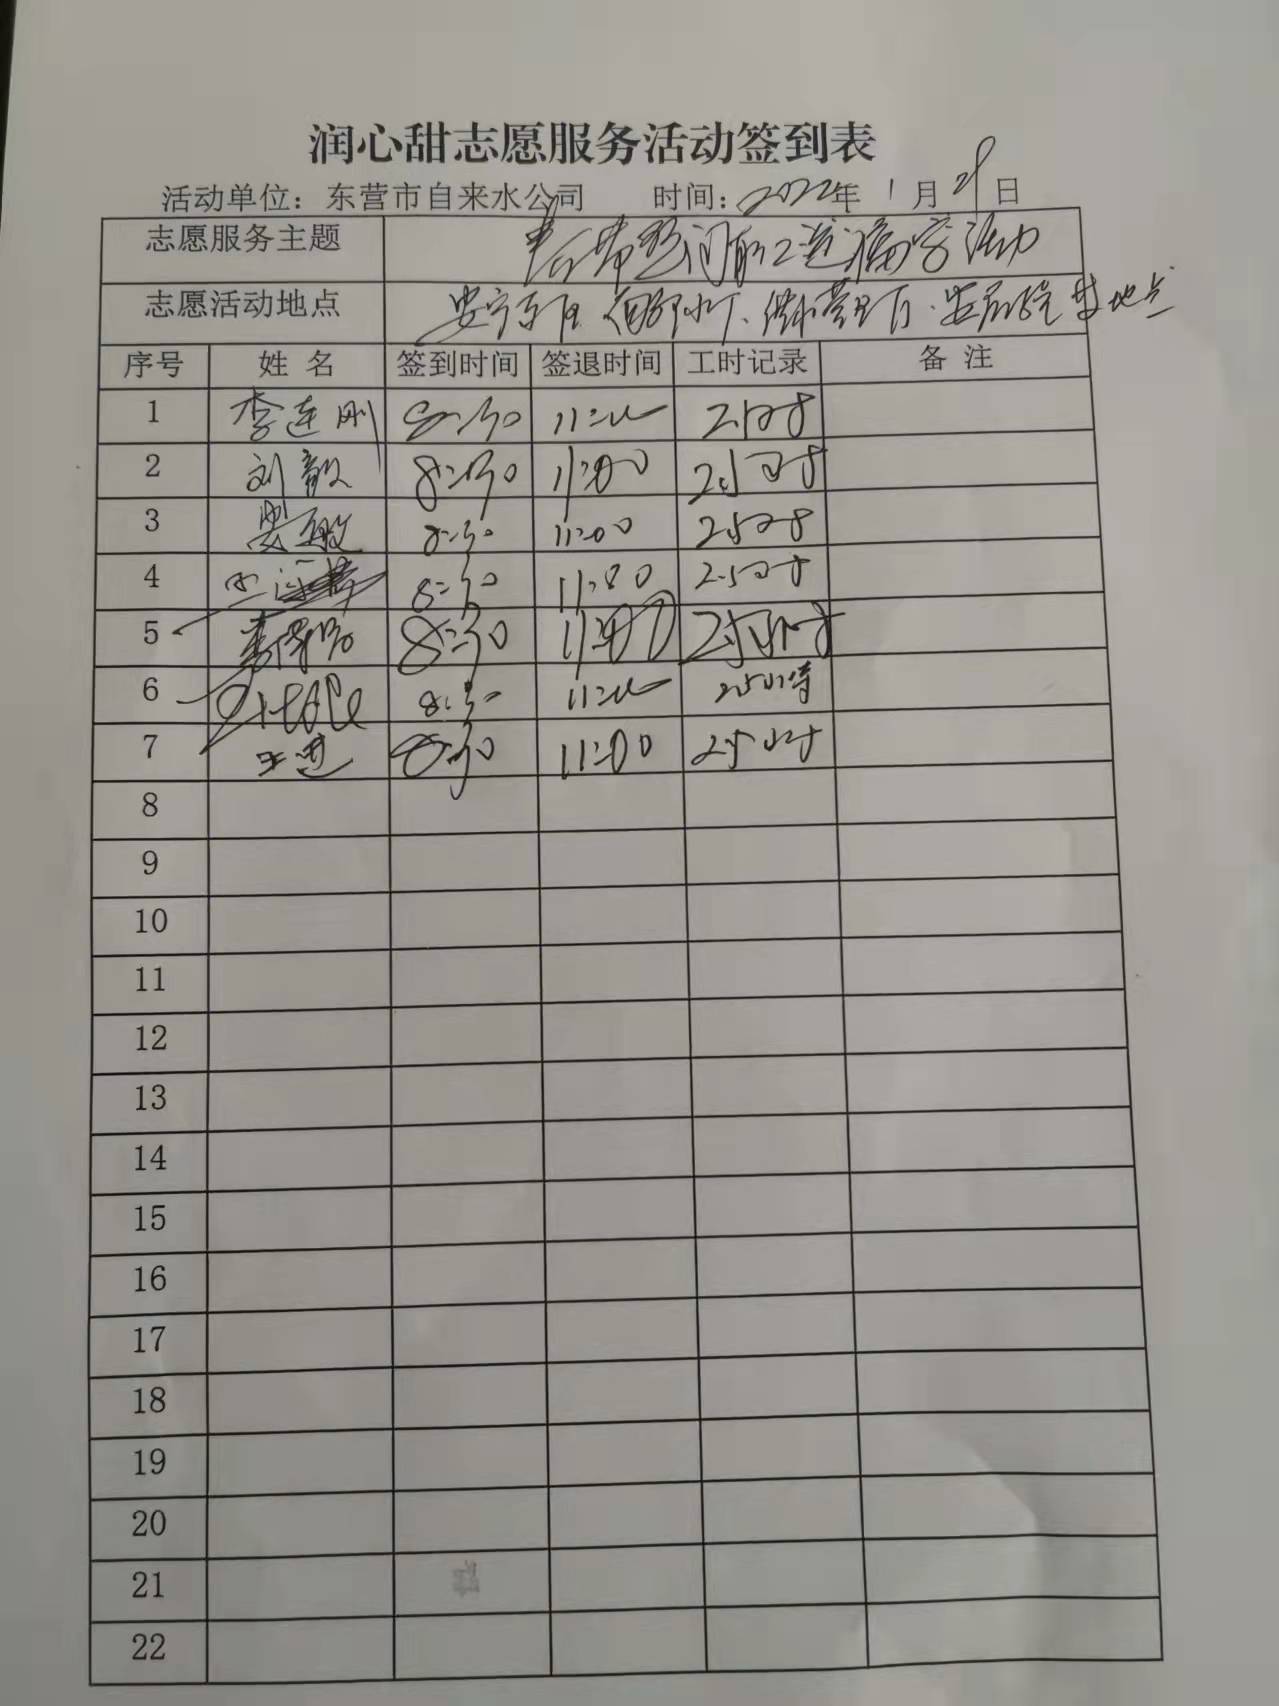 润心甜志愿服务活动签到表
活动单位：东营市自来水公司 时间：2022年 1月 29日
志愿服务主题 送福字活动
志愿活动地点 等地点
序号 姓名 签到时间 签退时间 工时记录 备注
1 李连刚 8:30 11:00 2.5小时
2 刘毅 8:30 11:00 2.5小时
3 8:30 11:00 2.5小时
4 8:30 11:00 2.5小时
5 8:30 11:00 2.5小时
6 8:30 11:00 2.5小时
7 王进 8:30 11:00 2.5小时
8
9
10
11
12
13
14
15
16
17
18
19
20
21
22